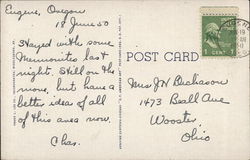 Eugene, Oregon
18 June 50
Stayed with some
Mennonites last
night. Still on the
move, but have a
better idea of all
of this area now.
Chas.
POST CARD
1 CENT 1
Mrs J H Buchanan
1473 Beall Ave
Wooster,
Ohio